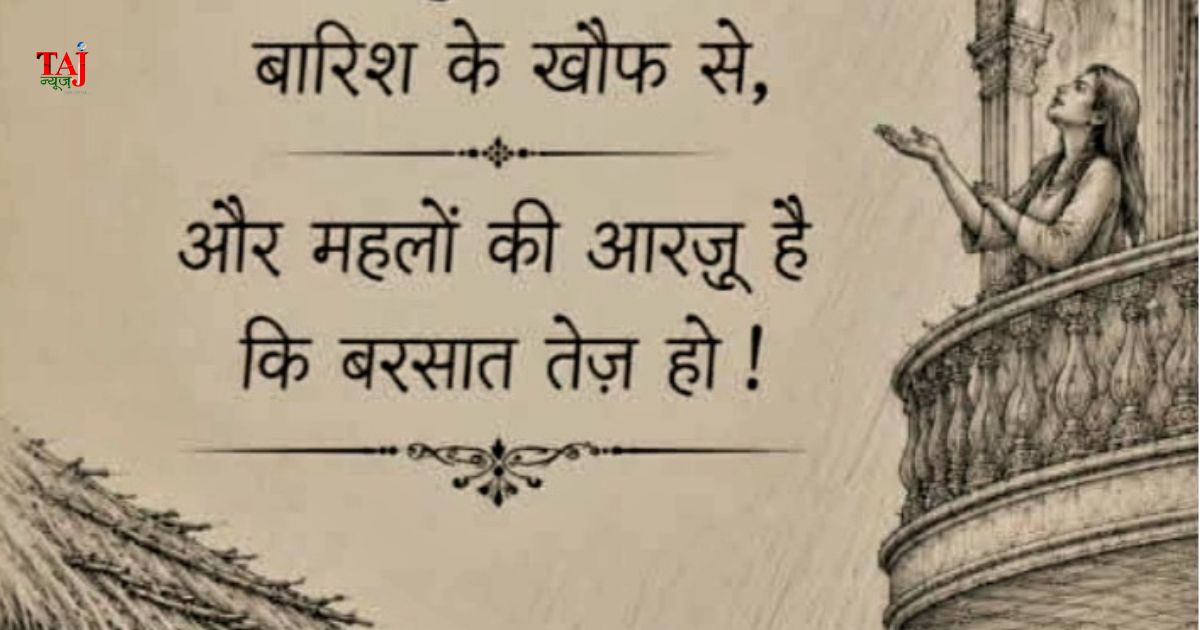 TAJ
न्यूज
बारिश के खौफ से,
और महलों की आरज़ू है
कि बरसात तेज़ हो !